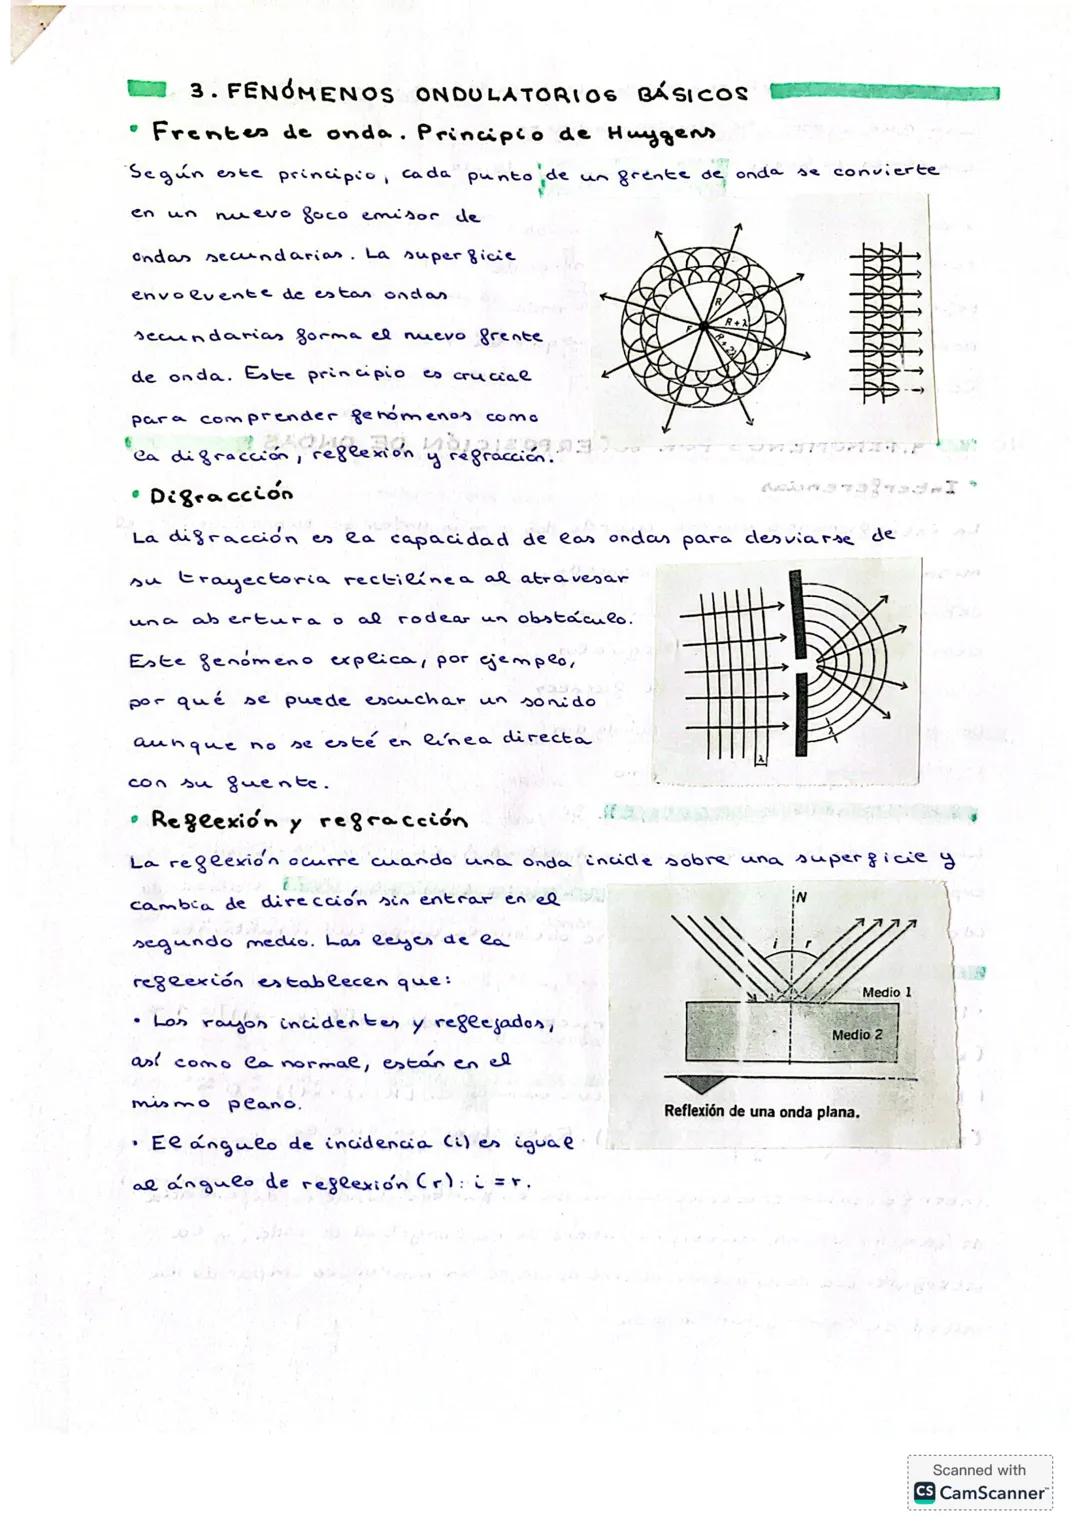 3. FENÓMENOS ONDULATORIOS BÁSICOS
• Frentes de onda. Principio de Huygens
Según este principio, cada punto de un frente de onda se convierte
en un nuevo foco emisor de
ondas secundarias. La superficie
envolvente de estas ondas
secundarias forma el nuevo frente
de onda. Este principio es crucial
para comprender fenómenos como
la difracción, reflexión y refracción.
F
R
R+λ
R+2λ
• Difracción
La difracción es la capacidad de las ondas para desviarse de
su trayectoria rectilínea al atravesar
una abertura o al rodear un obstáculo.
Este fenómeno explica, por ejemplo,
por qué se puede escuchar un sonido
aunque no se esté en línea directa
con su fuente.
λ
λ
• Reflexión y refracción
La reflexión ocurre cuando una onda incide sobre una superficie y
cambia de dirección sin entrar en el
segundo medio. Las leyes de la
reflexión establecen que:
• Los rayos incidentes y reflejados,
así como la normal, están en el
mismo plano.
• El ángulo de incidencia (i) es igual
al ángulo de reflexión (r): i = r.
N
i r
Medio 1
Medio 2
Reflexión de una onda plana.
Scanned with
CS CamScanner